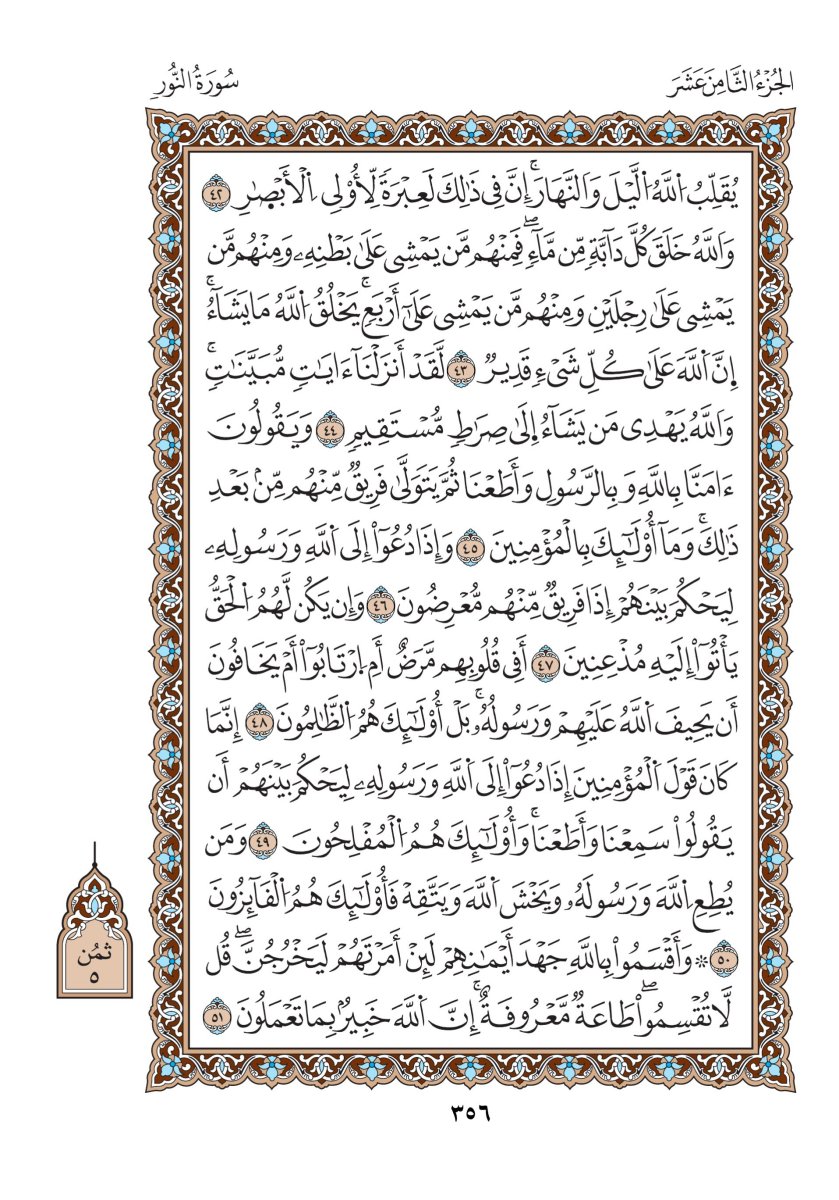 الجُزْءُ الثَّامِنَ عَشَرَ
سُورَةُ النُّورِ
يُقَلِّبُ اُ۬للَّهُ اُ۬لَّيْلَ وَالنَّهَارَۚ إِنَّ فِي ذَٰلِكَ لَعِبْرَةٗ لِّأُوْلِي اِ۬لْأَبْصِٰرِ ٤٢
وَاللَّهُ خَلَقَ كُلَّ دَآبَّةٖ مِّن مَّآءٖۖ فَمِنْهُم مَّن يَمْشِي عَلَىٰ بَطْنِهِۦ وَمِنْهُم مَّن
يَمْشِي عَلَىٰ رِجْلَيْنِ وَمِنْهُم مَّن يَمْشِي عَلَىٰٓ أَرْبَعٖۚ يَخْلُقُ اُ۬للَّهُ مَا يَشَآءُۚ
إِنَّ اَ۬للَّهَ عَلَىٰ كُلِّ شَيْءٖ قَدِيرٞ ٤٣ لَّقَدْ أَنزَلْنَآ ءَايَٰتٖ مُّبَيَّنَٰتٖۚ
وَاللَّهُ يَهْدِي مَن يَشَآءُ إِلَىٰ صِرَٰطٖ مُّسْتَقِيمٖ ٤٤ وَيَقُولُونَ
ءَامَنَّا بِاللَّهِ وَبِالرَّسُولِ وَأَطَعْنَا ثُمَّ يَتَوَلَّىٰ فَرِيقٞ مِّنْهُم مِّنۢ بَعْدِ
ذَٰلِكَۚ وَمَآ أُوْلَٰٓئِكَ بِالْمُؤْمِنِينَ ٤٥ وَإِذَا دُعُوٓاْ إِلَى اَ۬للَّهِ وَرَسُولِهِۦ
لِيَحْكُمَ بَيْنَهُمْ إِذَا فَرِيقٞ مِّنْهُم مُّعْرِضُونَ ٤٦ وَإِن يَكُن لَّهُمُ اُ۬لْحَقُّ
يَأْتُوٓاْ إِلَيْهِ مُذْعِنِينَ ٤٧ أَفِي قُلُوبِهِم مَّرَضٌ أَمِ اِ۪رْتَابُوٓاْ أَمْ يَخَافُونَ
أَن يَحِيفَ اَ۬للَّهُ عَلَيْهِمْ وَرَسُولُهُۥۚ بَلْ أُوْلَٰٓئِكَ هُمُ اُ۬لظَّٰلِمُونَ ٤٨ إِنَّمَا
كَانَ قَوْلَ اَ۬لْمُؤْمِنِينَ إِذَا دُعُوٓاْ إِلَى اَ۬للَّهِ وَرَسُولِهِۦ لِيَحْكُمَ بَيْنَهُمْ أَن
يَقُولُواْ سَمِعْنَا وَأَطَعْنَاۚ وَأُوْلَٰٓئِكَ هُمُ اُ۬لْمُفْلِحُونَ ٤٩ وَمَن
يُطِعِ اِ۬للَّهَ وَرَسُولَهُۥ وَيَخْشَ اَ۬للَّهَ وَيَتَّقِهْ فَأُوْلَٰٓئِكَ هُمُ اُ۬لْفَآئِزُونَ
٥٠ ۞ وَأَقْسَمُواْ بِاللَّهِ جَهْدَ أَيْمَٰنِهِمْ لَئِنْ أَمَرْتَهُمْ لَيَخْرُجُنَّۖ قُل
لَّا تُقْسِمُواْۖ طَاعَةٞ مَّعْرُوفَةٌۚ إِنَّ اَ۬للَّهَ خَبِيرُۢ بِمَا تَعْمَلُونَ ٥١
ثمُن
٥
٣٥٦